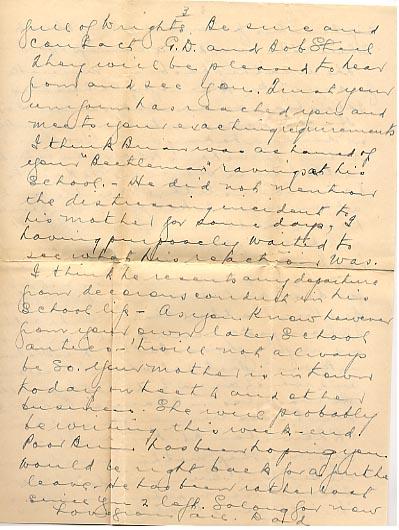 3
full of Wrights. Be sure and
contact G.D. and Bob
They will be pleased to hear
from and see you. Trust your
uniform has reached you and
meets your exacting requirements
I think was ashamed of
your "Beetleman" ravings at his
School. - He did not mention
the distressing incident to
his mother for some days, I
having purposely waited to
see what his reaction was.
I think he resents any departure
from decorous conduct in his
School life - As you know however
from your own later School
antics 'twill not always
be so. Your mother is in town
today on and other
business. She will probably
be writing this week-end.
Poor has been hoping you
would be right back for a further
leave. He has been rather lost
since you left. So long for now
Love from all Dad